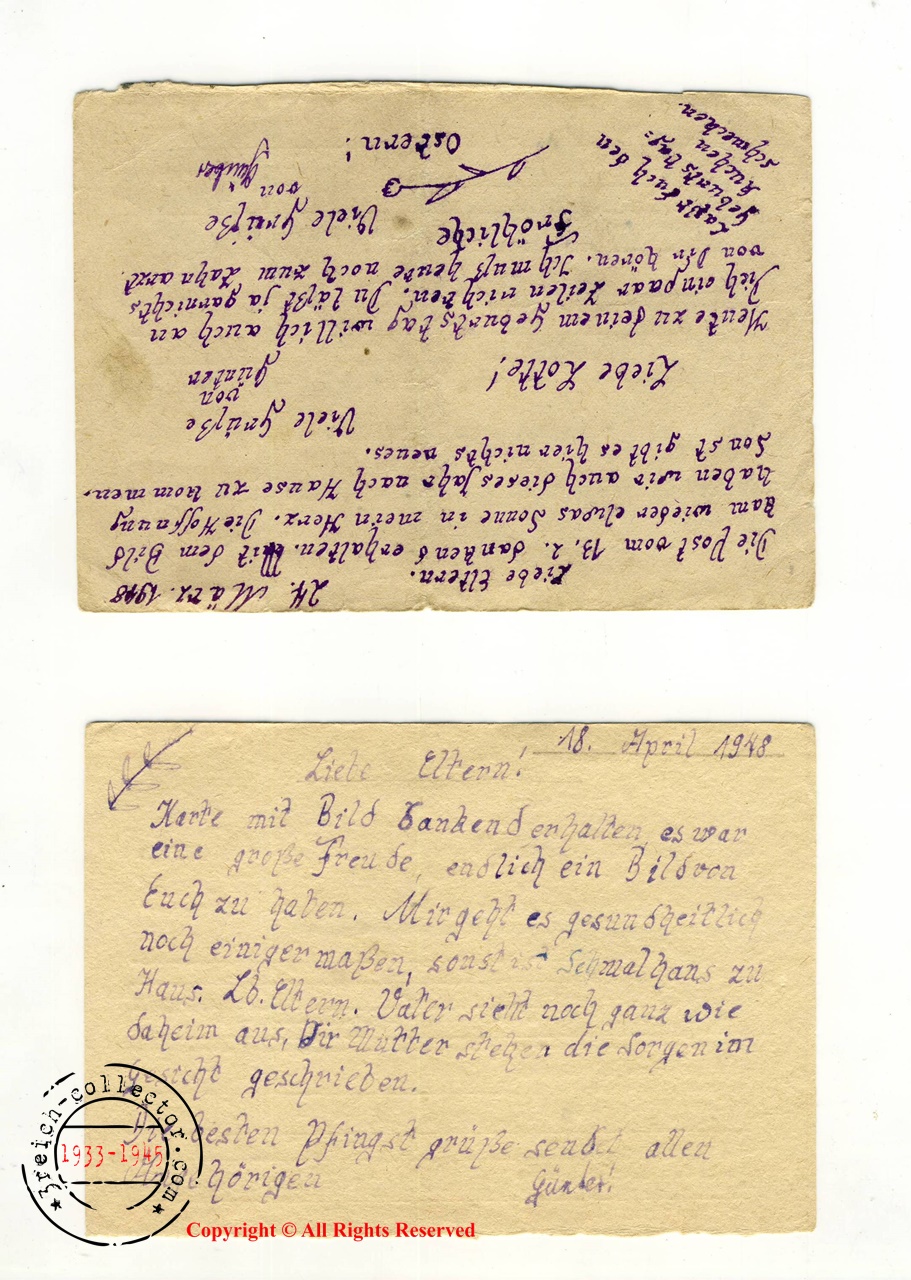 24. März. 1948.
Liebe Eltern.
Die Post vom 13. 2. dankend erhalten. Mit dem Bild
kam wieder etwas Sonne in mein Herz. Die Hoffnung
haben wir auch dieses Jahr nach Hause zu kommen.
Sonst gibt es hier nichts neues.
Viele Grüße
von
Günter
Liebe Lotte!
Heute zu deinem Geburtstag will ich auch an
Dich ein paar Zeilen richten. Du läßt ja garnichts
von dir hören. Ich muß heute noch zum Zahnarzt.
Viele Grüße
von
Günter
Fröhliche
Ostern!
Laßt Euch den
Geburtstag=
kuchen
schmecken.
18. April 1948
Liebe Eltern!
Karte mit Bild dankend erhalten, es war
eine große Freude, endlich ein Bild von
Euch zu haben. Mir geht es gesundheitlich
noch einigermaßen, sonst ist Schmalhans zu
Haus. Lb. Eltern. Vater sieht noch ganz wie
daheim aus, Dir Mutter stehen die Sorgen im
Gesicht geschrieben.
Die besten Pfingstgrüße sendet allen
Angehörigen
Günter!
3reich-collector.com
1933-1945
Copyright © All Rights Reserved